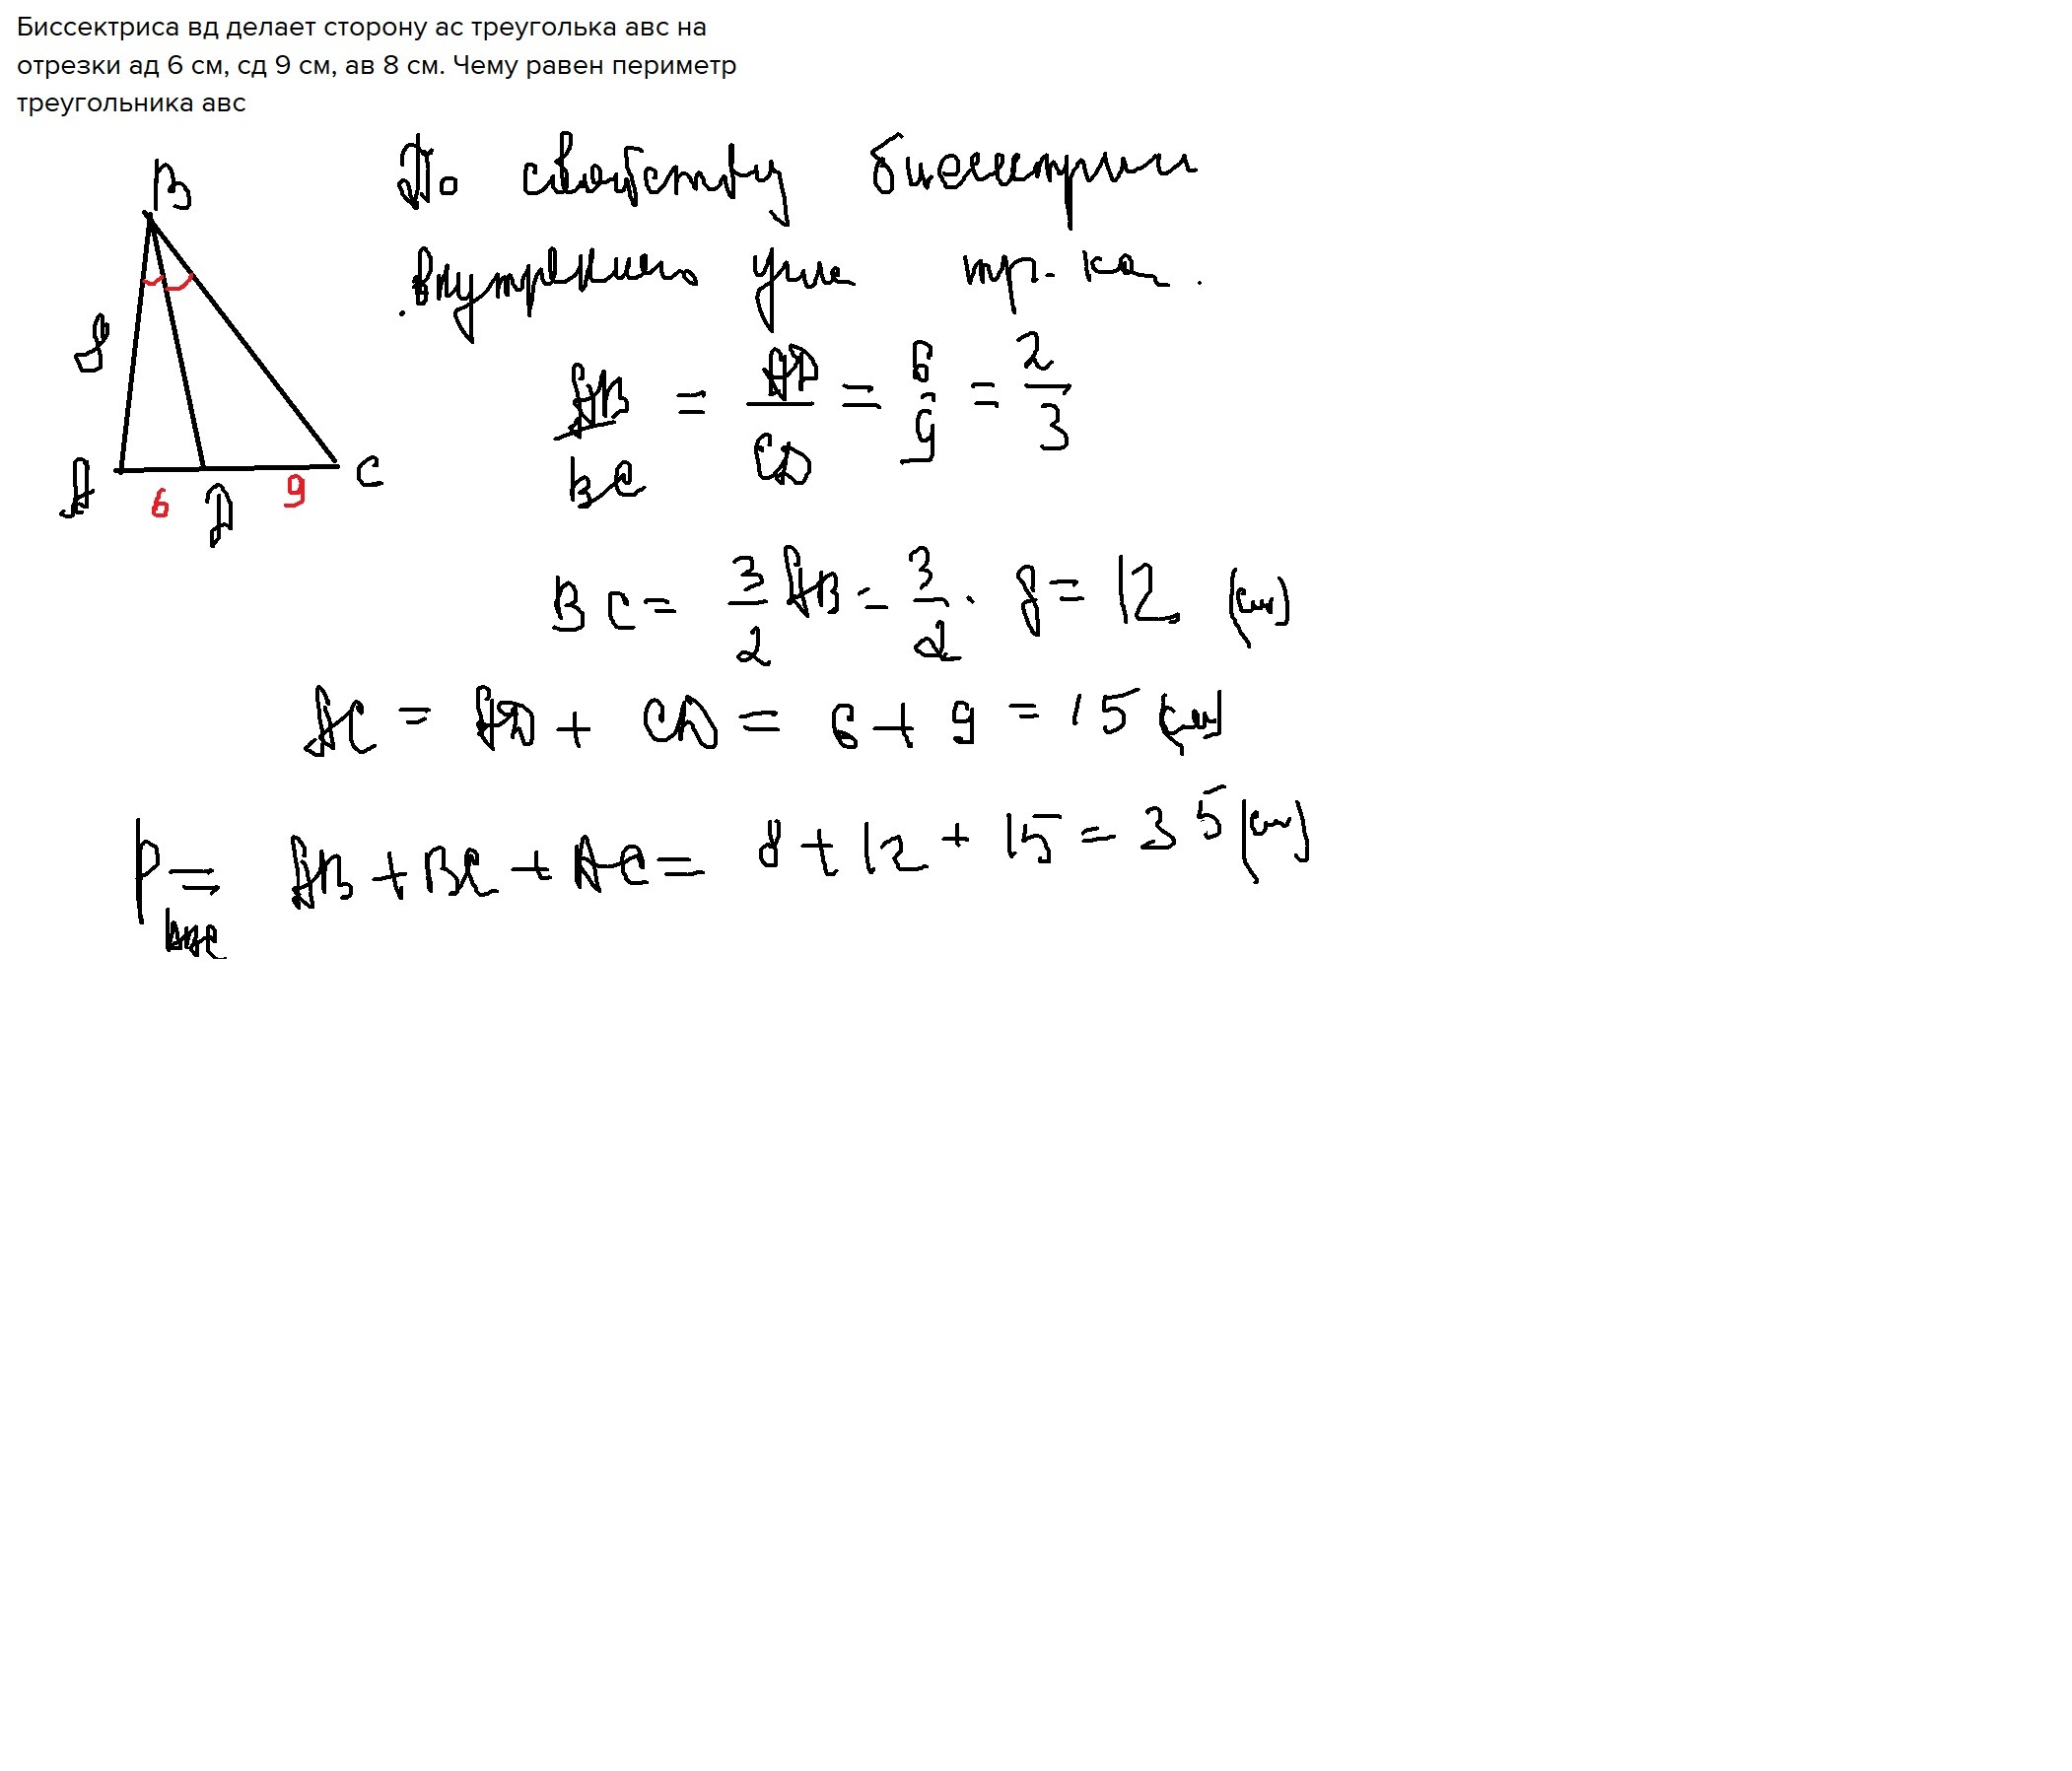 Биссектриса вд делает сторону ас треуголька авс на
отрезки ад 6 см, сд 9 см, ав 8 см. Чему равен периметр
треугольника авс
По свойству биссектрисы
внутреннего угла тр-ка.
B
8
A 6 D 9 C
AB/BC = AD/CD = 6/9 = 2/3
BC = 3/2 AB = 3/2 · 8 = 12 (см)
AC = AD + CD = 6 + 9 = 15 (см)
P = AB + BC + AC = 8 + 12 + 15 = 35 (см)